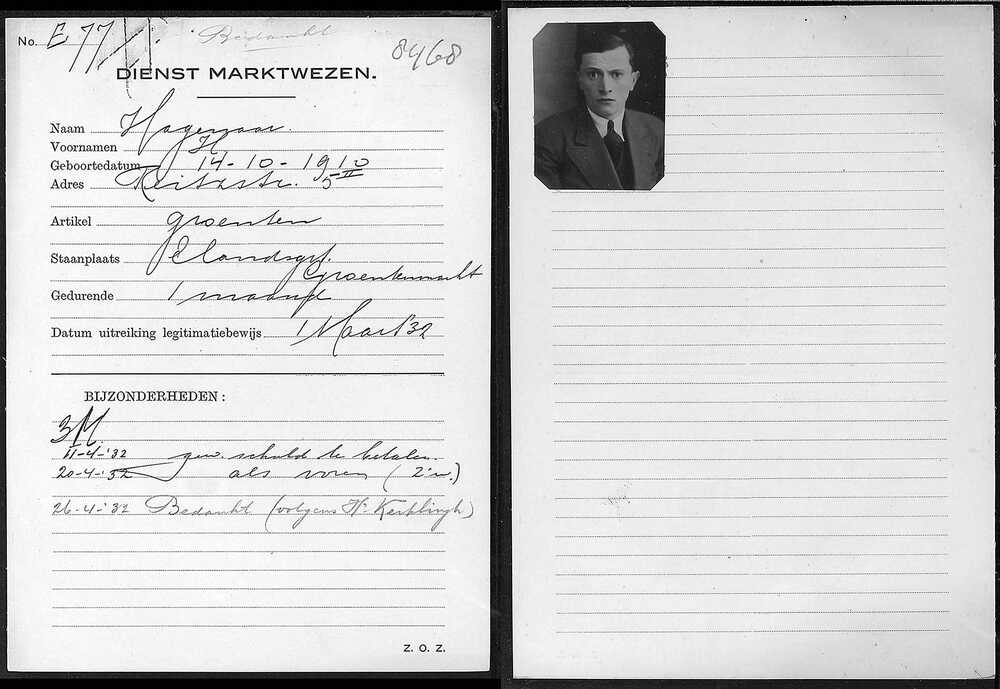 No. E 77
Bedankt
8468
DIENST MARKTWEZEN.
Naam Hagenaar.
Voornamen H
Geboortedatum 14-10-1910
Adres Reitzstr. 5 II
Artikel groenten
Staanplaats Elandsgr.
Groentenmarkt
Gedurende 1 maand
Datum uitreiking legitimatiebewijs 1 Maart '32
BIJZONDERHEDEN:
3M.
11-4-'32 gew. schuld te betalen.
20-4-'32 als voren (2e w.)
26-4-'32 Bedankt (volgens Hr
Z. O. Z.